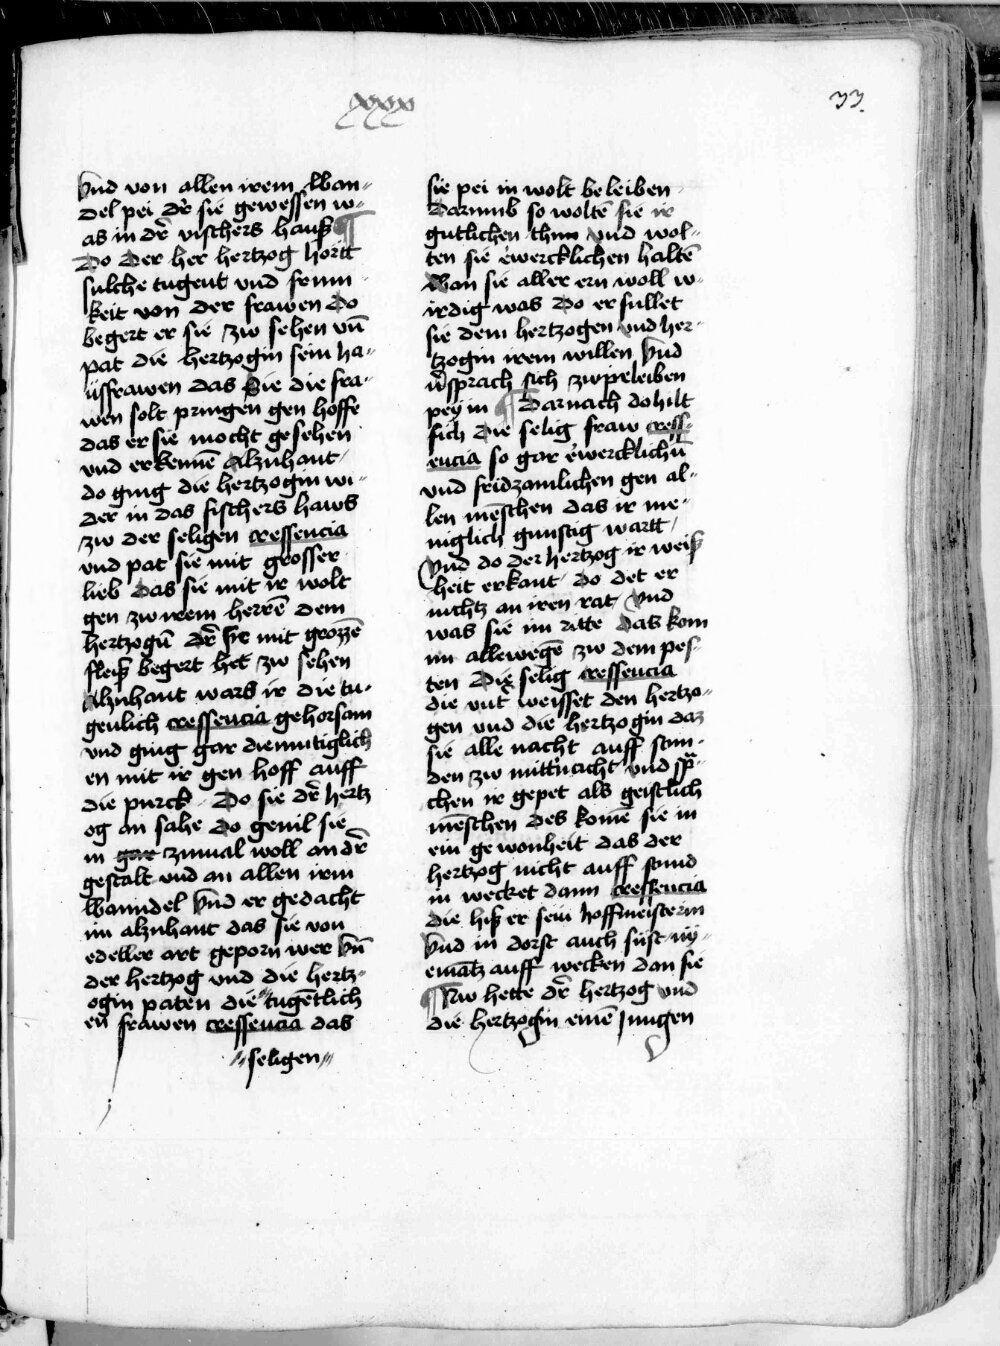 xxx
33.
Vnd von allen irem Wan-
del pei dr̄ sie gewessen w-
as in dr̄ vischers hauß ¶
Do Der her hertzog hortt
sulche tugent vnd frum-
keit von der frawen do
begert er sie zw sehen vn̄
pat die hertzogin sein ha-
usfrawen das Sie die fra-
wen solt pringen gen hoffe
das er sie mocht gesehen
vnd erkennē Alzuhant
do ging die hertzogin wi-
der in das fischers haws
zw der seligen cressencia
vnd pat sie mit grosser
lieb Das sie mit ir wolt
gen zw irem herrē dem
hertzogū dr̄ sie mit grozzē
fleiß begert het zw sehen
Alzuhant wars ir die tu-
genlich cressencia gehorsam
vnd ging gar diemutiglich
en mit ir gen hoff auff
die purck Do sie dr̄ hertz
og an sahe do geuil sie
in gar zumal woll an dr̄
gestalt vnd an allen irm
Wanndel Vnd er gedacht
im alzuhant das sie von
edeller art geporn wer Vn̄
der hertzog vnd die hertz-
ogin paten die " tugētlich
en frawen cressencia das
"seligen"
sie pei in wolt beleiben
Darumb so woltē sie ir
gutlichen thun vnd wol-
ten sie ewercklichen haltē
Wan sie aller ern woll w-
irdig was Do erfullet
sie dem hertzogen vnd her-
tzogin irem willen Vnd
v̄sprach sich zw peleiben
pey in ¶ Darnach do hilt
sich Die selig fraw cress-
encia so gar ewercklichn̄
vnd fridzamlichen gen al-
len mēschen das ir me-
niglich gunstig wartt
Vnd do der hertzog ir weiß
heit erkant do det er
nichtz an iren rat Vnd
was sie im ritte Das kom
im allewegē zw dem pes-
ten Die selig cressencia
die vnt weisset den hertzo-
gen vnd die hertzogin daz
sie alle nacht auff stun-
den zw mitt'nacht vnd spr̄-
chen ir gepet als geistlich
mēschen des kome sie in
ein gewonheit das der
hertzog nicht auff stund
in wecket dann cressencia
die hiß er sein hoffmeisterin
Vnd in dorst auch sust ny-
emātz auff wecken dan sie
¶ Nw hette dr̄ hertzog vnd
die hertzogin einē Jungen